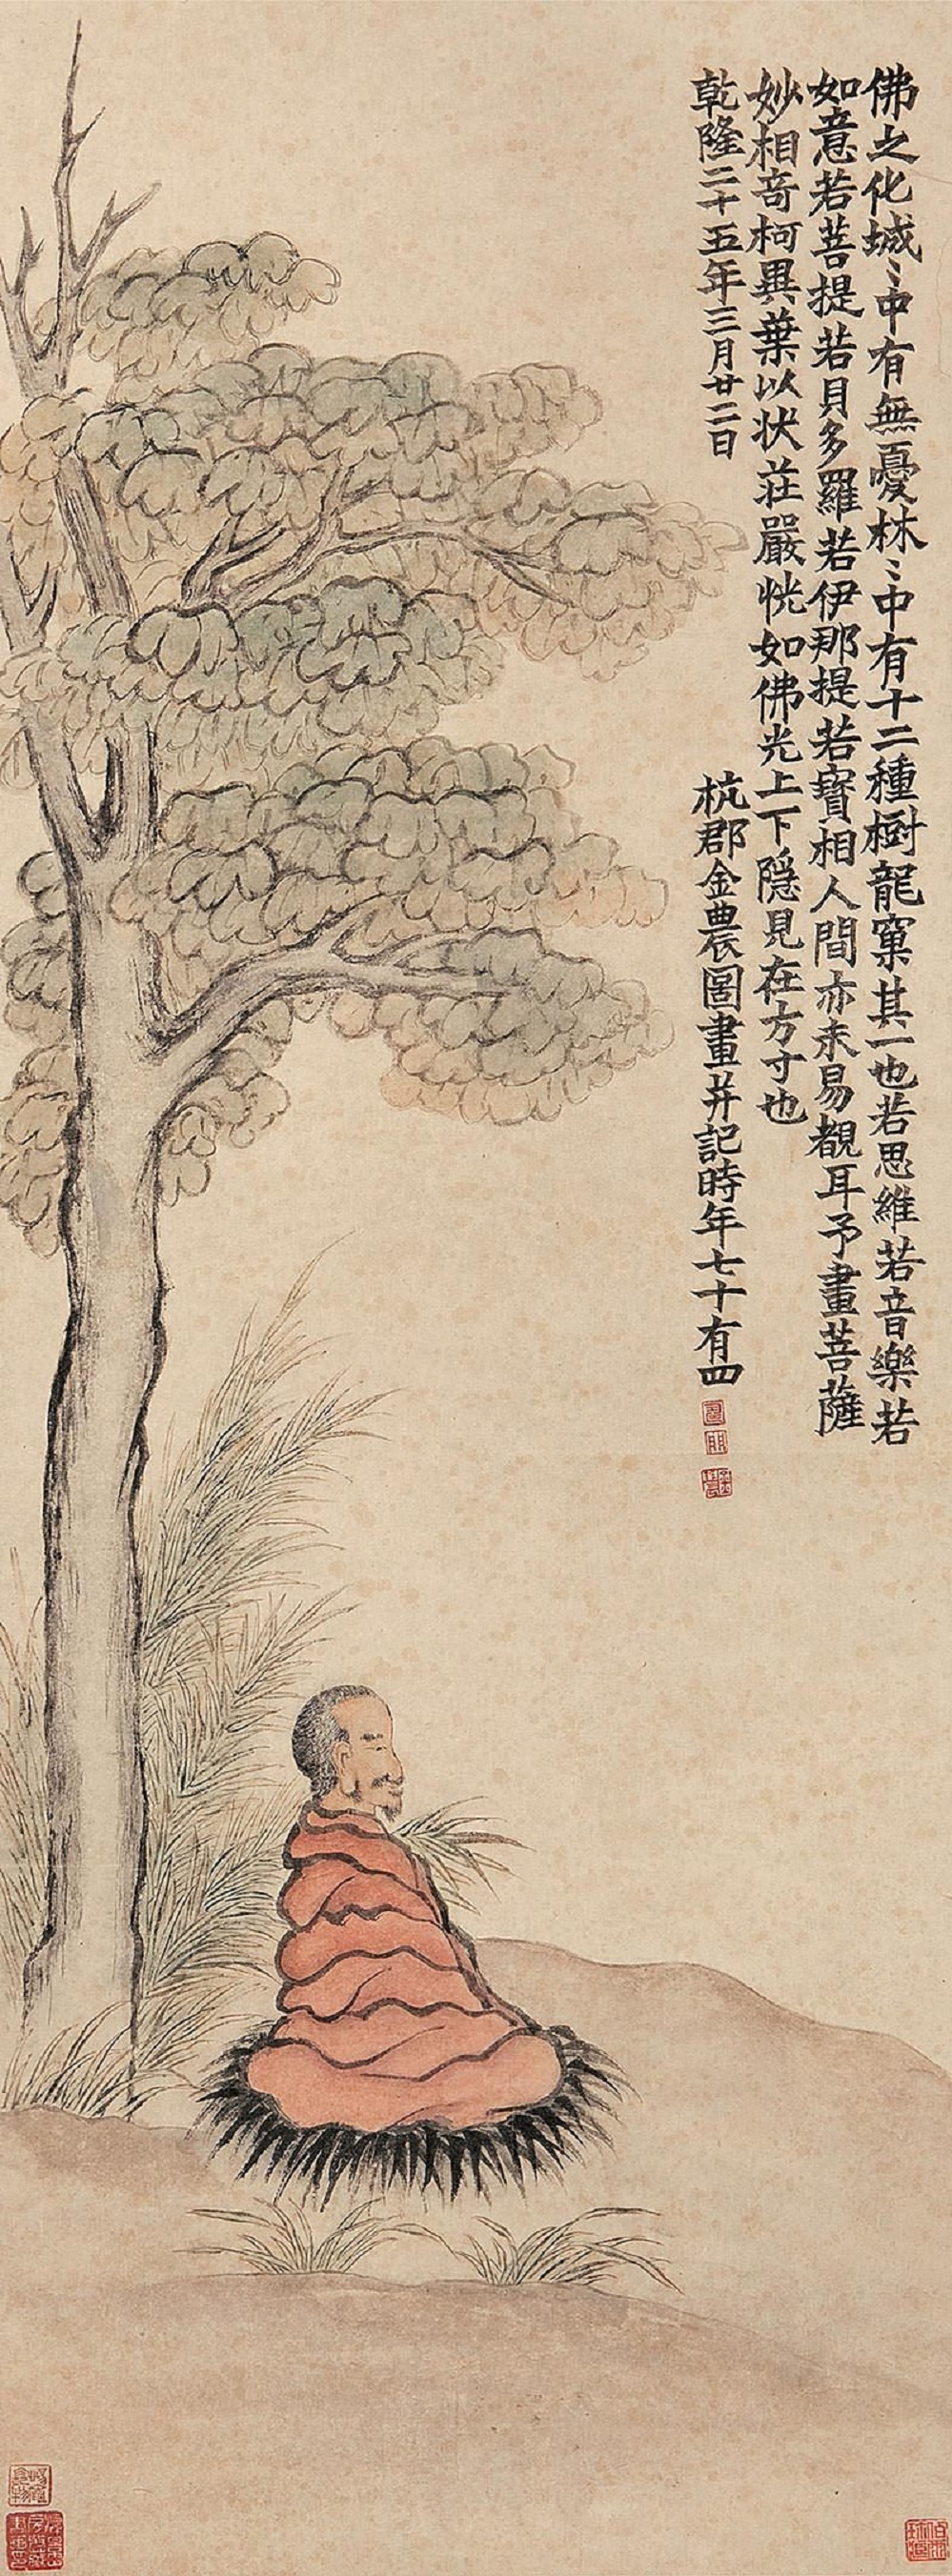 佛之化城〻中有無憂林〻中有十二種樹龍窠其一也若思維若音樂若
如意若菩提若貝多羅若伊那提若寶相人間亦未易覩耳予畫菩薩
妙相奇柯異葉以狀莊嚴恍如佛光上下隱見在方寸也
乾隆二十五年三月廿二日
杭郡金農圖畫并記時年七十有四